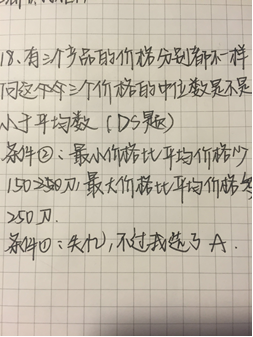 18、有三个产品的价格分别都不一样
问这个三个价格的中位数是不是
小于平均数（DS题）
条件②：最小价格比平均价格少
150刀，最大价格比平均价格多
250刀.
条件①：失忆，不过我选了A.